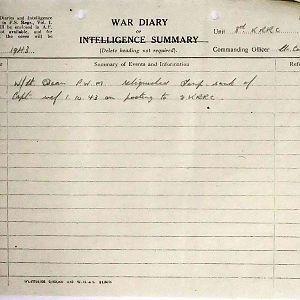 Diaries and Intelligence
in F.S. Regs., Vol. I.
will be enclosed in A.F.
not available, and for
the cover will be
WAR DIARY
OR
INTELLIGENCE SUMMARY
(Delete heading not required).
Unit
K.R.R.C.
Commanding Officer
1943
Summary of Events and Information
Refe
P.W.M. relinquished rank of
Capt wef 1. 10. 43 on posting to 2 KRRC.